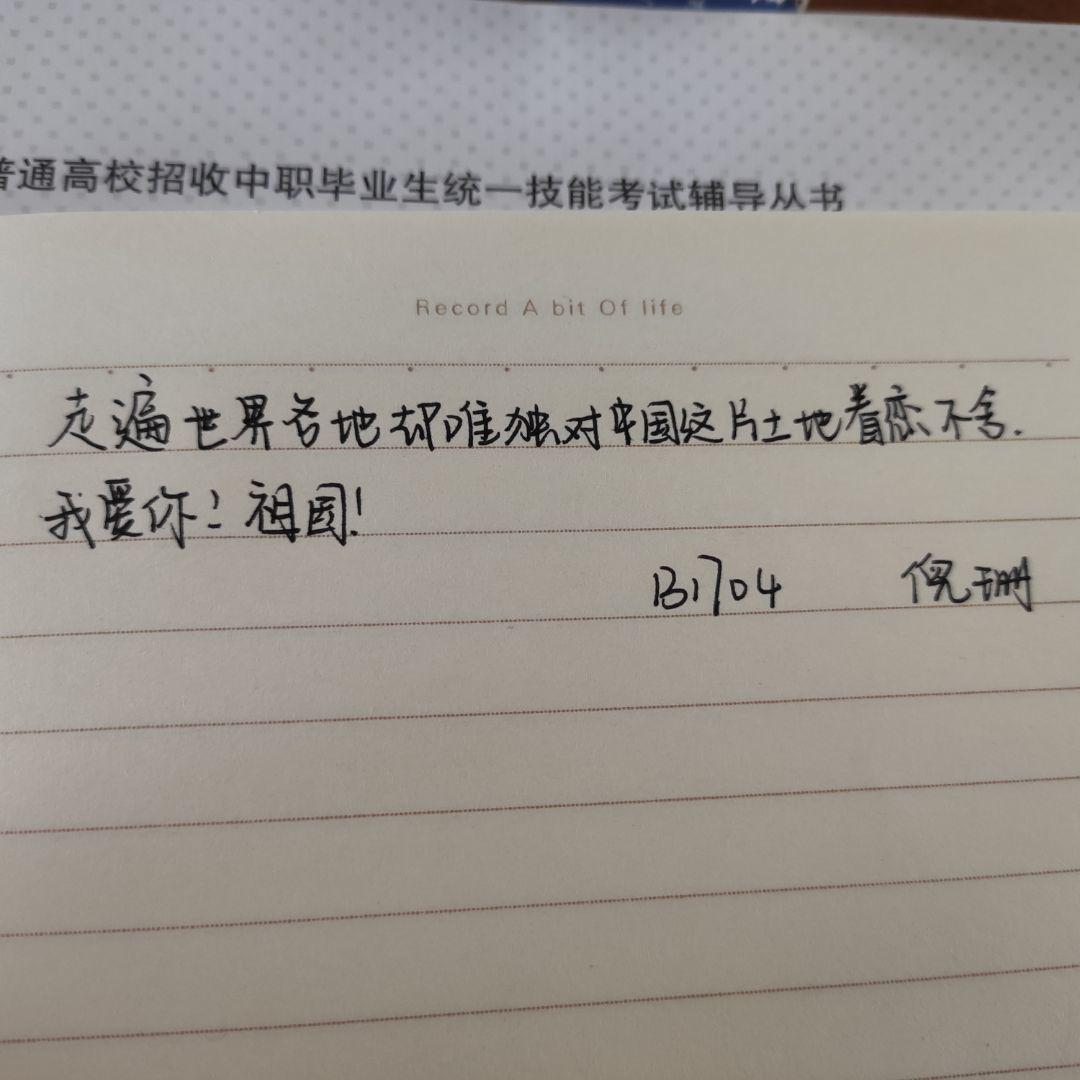 普通高校招收中职毕业生统一技能考试辅导丛书
Record A bit Of life
走遍世界各地却唯独对中国这片土地眷恋不舍.
我爱你!祖国!
B1704 倪珊